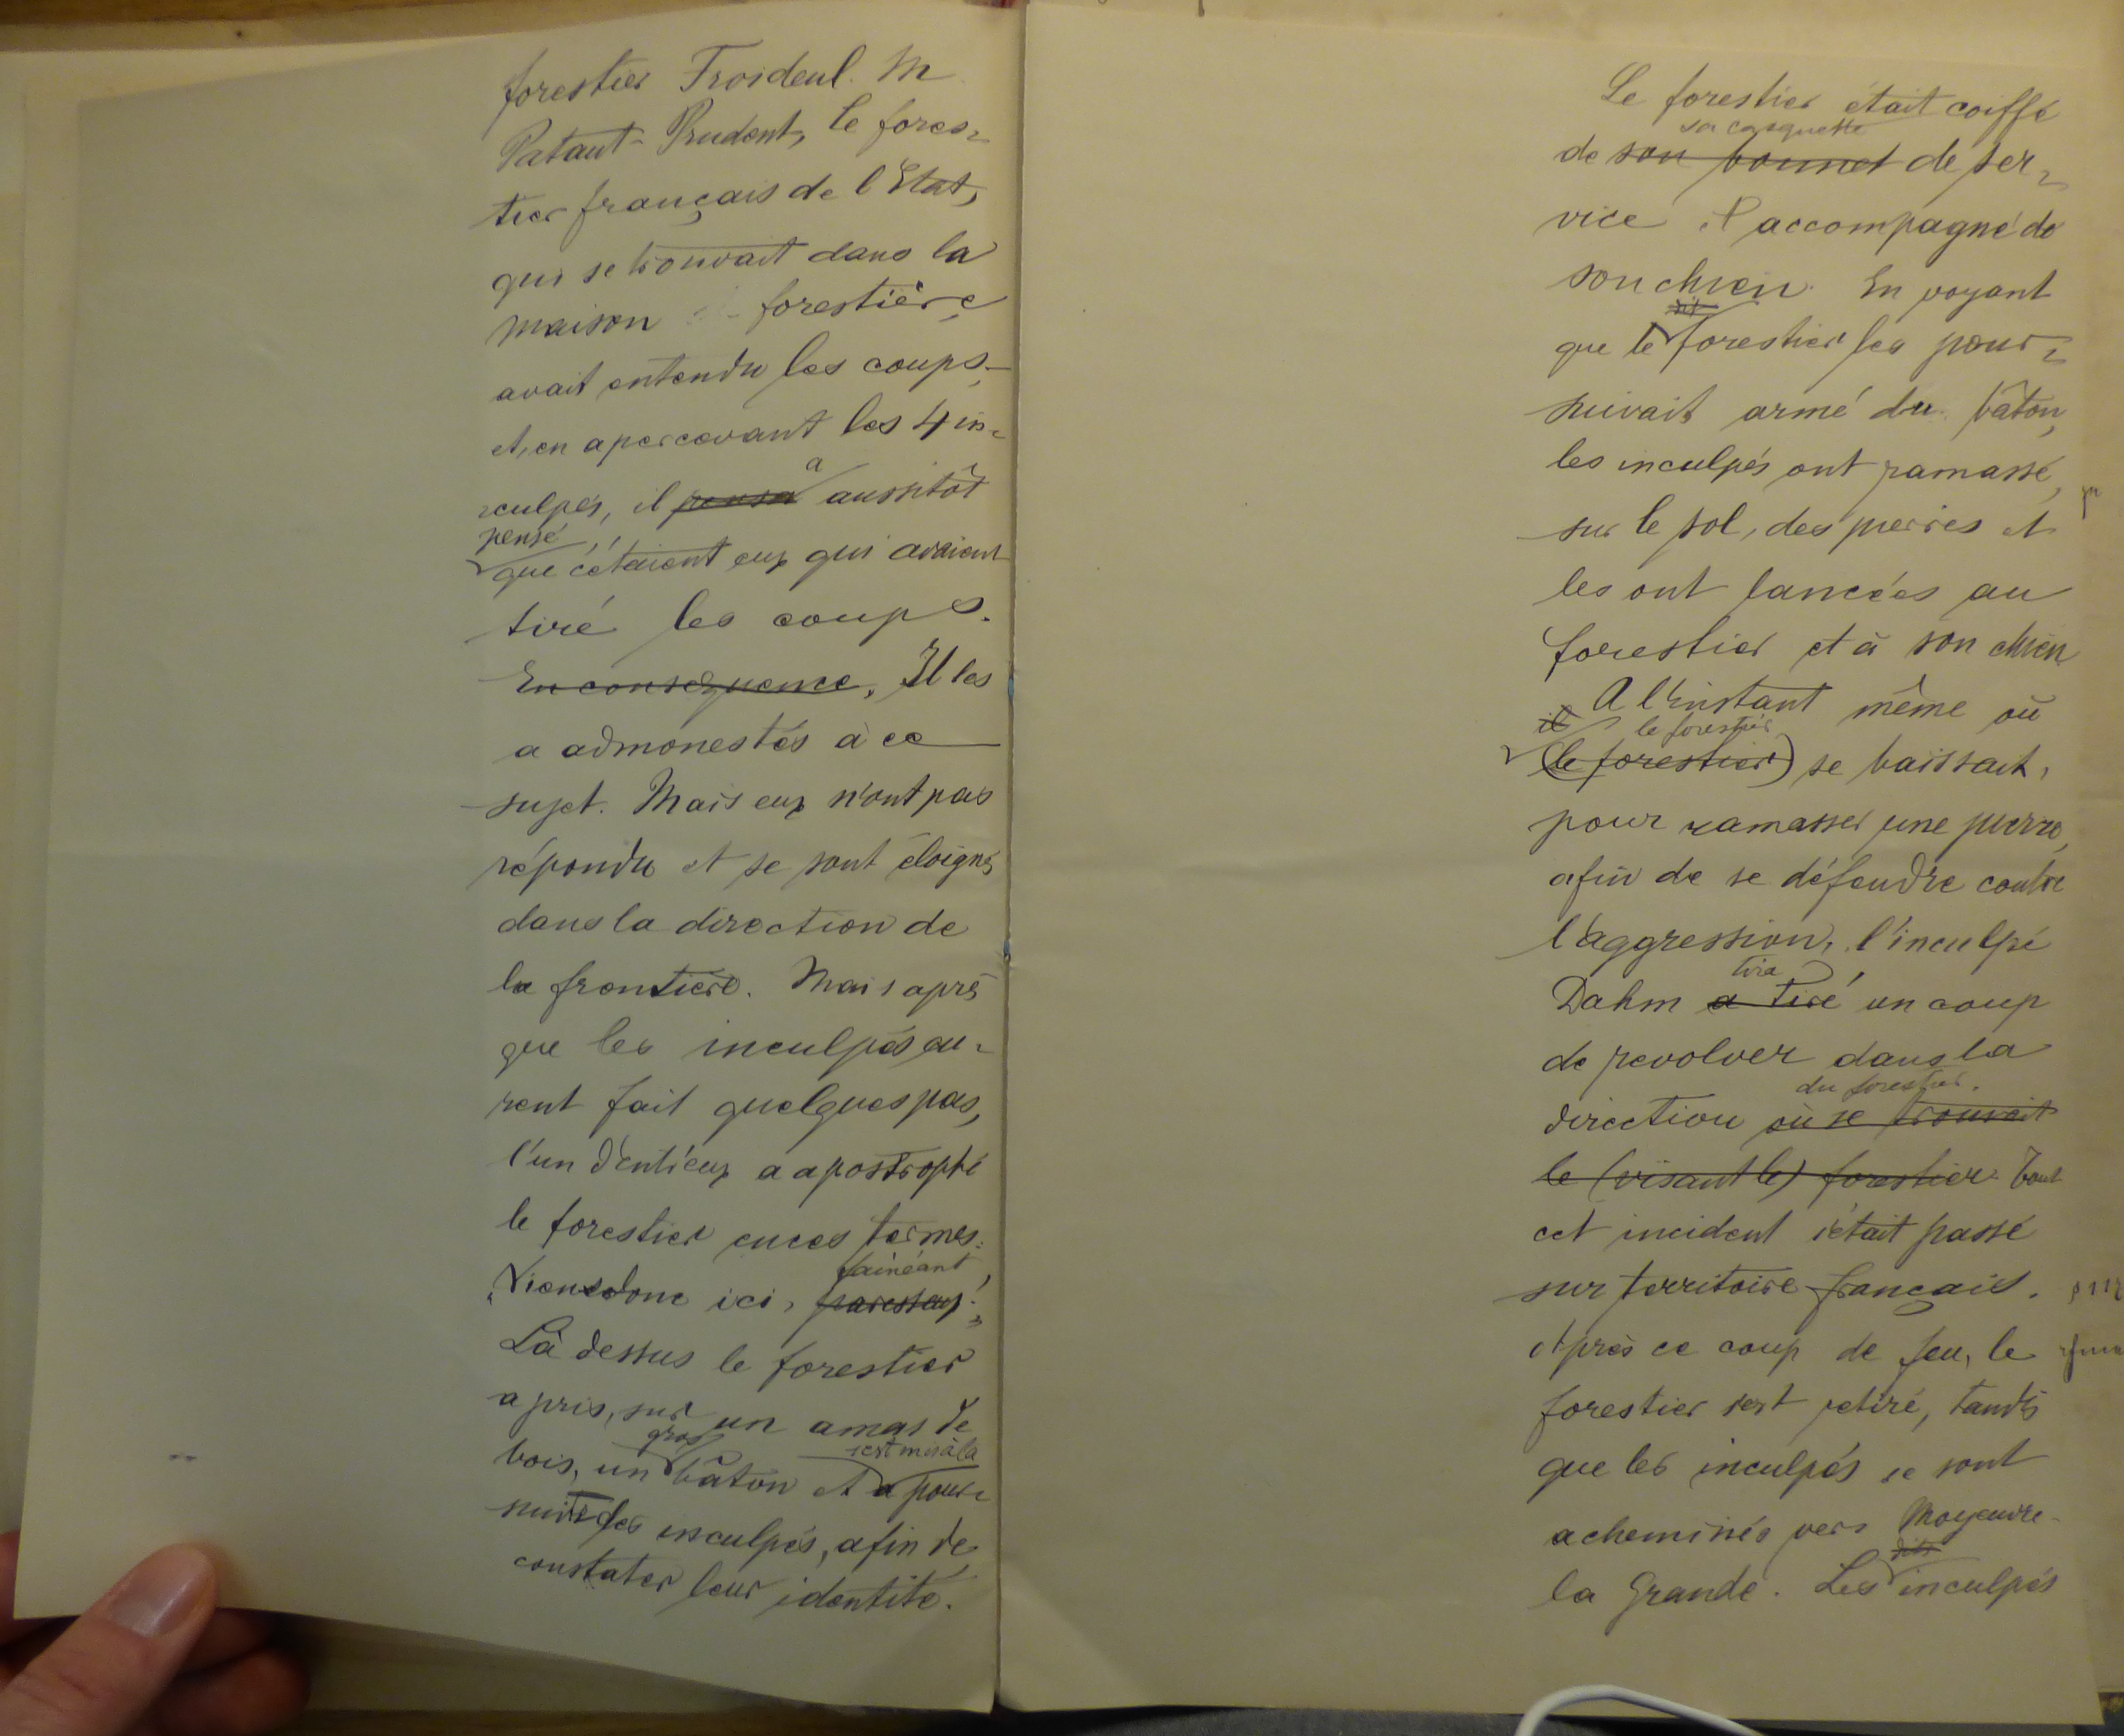 forestier Troideul. M
Pataut-Prudent, le fores=
tier français de l'Etat,
qui se trouvait dans la
maison forestière,
avait entendu les coups
et, en apercevant les 4 in=
a
culpés, il pensa aussitôt
pensé
que c'étaient eux qui avaient
tiré les coups.
En conséquence, Il les
a admonestés à ce
sujet. Mais eux n'ont pas
répondu et se sont éloignés
dans la direction de
la frontière. Mais après
que les inculpés eu=
rent fait quelques pas,
l'un d'entr'eux a apostrophé
le forestier en ces termes:
fainéant
"Viens donc ici, paresseux!"
Là dessus le forestier
a pris, sur un amas de
gros s'est mis à la
bois, un bâton et a pour=
suite des inculpés, afin de
constater leur identité.
Le forestier était coiffé
sa casquette
de son bonnet de ser=
vice et accompagné de
son chien. En voyant
dit
que le forestier les pour=
suivait armé du bâton,
les inculpés ont ramassé,
sur le sol, des pierres et
les ont lancées au
forestier et à son chien
A l'instant même où
il le forestier
(le forestier) se baissait,
pour ramasser une pierre,
afin de se défendre contre
l'aggression, l'inculpé
tira
Dahm a tiré un coup
de revolver dans la
du forestier.
direction où se trouvait
le (visant le) forestier. Tout
cet incident s'était passé
sur territoire français.
Après ce coup de feu, le
forestier s'est retiré, tandis
que les inculpés se sont
acheminés vers Moyeuvre-
dits
la Grande. Les inculpés